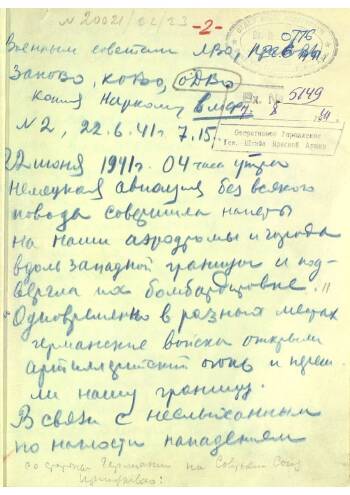 №20021/02/23 -2-
Военным советам ЛВО, ПрибОВО,
ЗапОВО, КОВО, ОДВО,
копия Наркому ВМФ
N2, 22.6.41г 7.15
5149
Оперативное Управление
Ген. Штаба Красной Армии
22 июня 1941г. 04 часа утра
немецкая авиация без всякого
повода совершила налеты
на наши аэродромы и города
вдоль западной границы и под-
вергла их бомбардировке.
Одновременно в разных местах
германские войска открыли
артиллерийский огонь и переш-
ли нашу границу.
В связи с неслыханным
по наглости нападением
со стороны Германии на Советский Союз